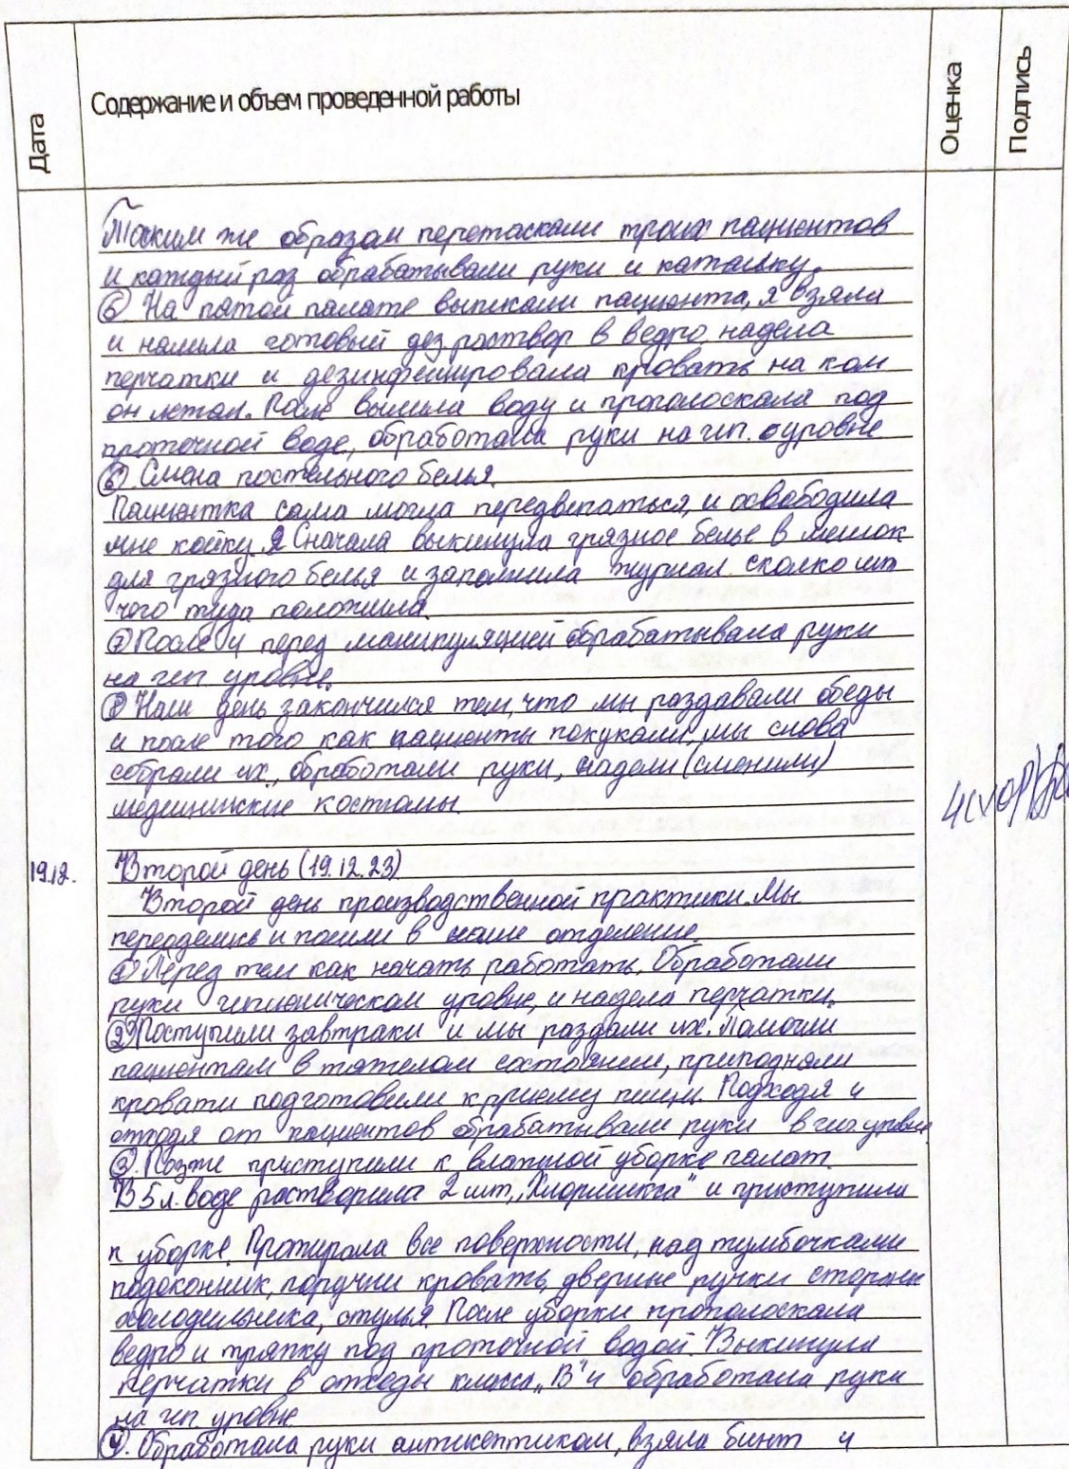 Дата
Содержание и объем проведенной работы
Оценка
Подпись
Таким же образом перетаскали троих пациентов
и каждый раз обрабатывали руки и каталку.
⑤ На пятой палате выписали пациента, я взяла
и налила готовый дез раствор в ведро, надела
перчатки и дезинфицировала кровать на ком
он лежал. После вылила воду и прополоскала под
проточной воде, обработала руки на гиг. уровне
⑥. Смена постельного белья.
Пациентка сама могла передвигаться, и освободила
мне койку. Я Сначала выкинула грязное белье в мешок
для грязного белья и заполнила журнал сколко шт
чего туда положила.
⑦ После и перед манипуляцией обрабатывала руки
на гиг. уровне.
⑧ Наш день закончился тем, что мы раздавали обеды
и после того как пациенты покушали, мы снова
собрали их, обработали руки, надели (сменили)
медицинские костюмы
4(хор)
19.12.
Второй день (19.12.23)
Второй день производственной практики. Мы
переоделись и пошли в наше отделение
① Перед тем как начать работать. Обработали
руки гигиеническом уровне, и надела перчатки.
② Поступили завтраки и мы раздали их. Помогли
пациентам в тяжелом состоянии, приподняли
кровати подготовили к приему пищи. Подходя и
отходя от пациентов обрабатывали руки в гиг уровне.
③. Позже приступили к влажной уборке палат.
В 5 л. воде растворила 2 шт. „Хлормисепт" и приступила
к уборке. Протирала все поверхности, над тумбочками
подоконник, поручни кровать, дверные ручки стораны
холодильника, стулья. После уборки прополоскала
ведро и тряпку под проточной водой. Выкинула
перчатки в отходы класса „В" и обработала руки
на гиг. уровне
④. Обработала руки антисептиком, взяла бинт и